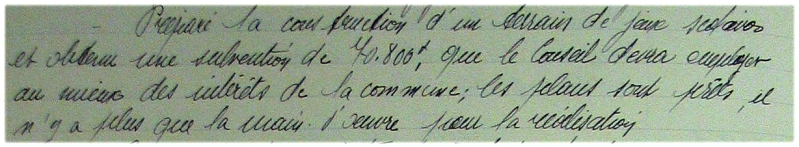 - Préparé la construction d'un terrain de jeux scolaires
et obtenu une subvention de 70.800f, que le Conseil devra employer
au mieux des intérêts de la commune; les plans sont prêts, il
n'y a plus que la main-d'oeuvre pour la réalisation